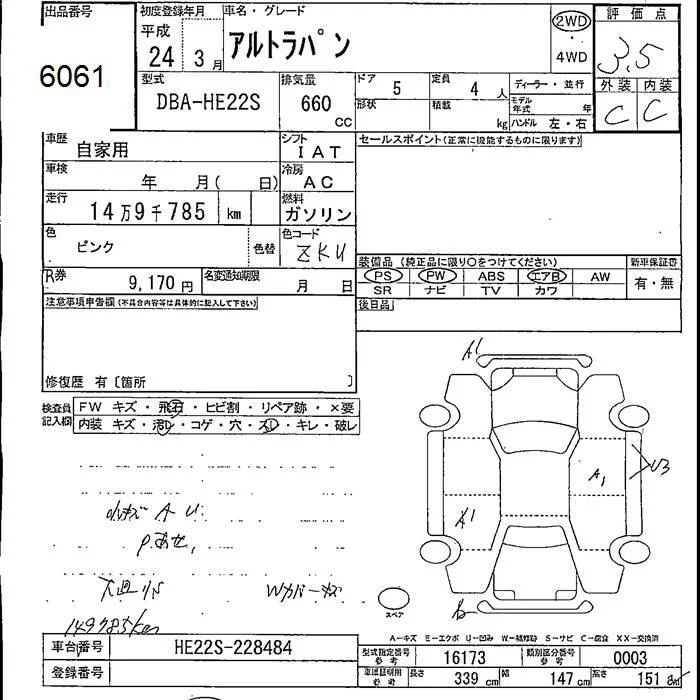 出品番号 初度登録年月 車名・グレード 評価点
6061 平成 24 3月 アルトラパン 2WD ・ 4WD 3.5
型式 DBA-HE22S 排気量 660 CC ドア 5 定員 4 人 ディーラー・並行 外装 内装
形状 積載 kg モデル年式 年 ハンドル 左・右 C C
車歴 自家用 シフト IAT セールスポイント(正常に機能するものに限ります)
車検 年 月( 日) 冷房 AC
走行 14万9千785 km 燃料 ガソリン
色 ピンク 色替 色コード ZKU
装備品 (純正品に限り○をつけてください) 新車保証書
R券 9,170円 名変通知期限 月 日 PS PW ABS エアB AW 有・無
SR ナビ TV カワ
注意事項申告欄(不具合内容等は具体的に記入して下さい) 後日品
修復歴 有〔箇所 〕
検査員記入欄 FW キズ・飛石・ヒビ割・リペア跡・×要
内装 キズ・汚レ・コゲ・穴・スレ・キレ・破レ
A1
U3
A1
A1
A U
P
149785km
スペア
A－キズ E－エクボ U－凹み W－補修跡 S－サビ C－腐食 XX－交換済
車台番号 HE22S-228484 型式指定番号 参考 16173 類別区分番号 参考 0003
登録番号 車庫証明用 参考 長さ 339 cm 幅 147 cm 高さ 151 cm